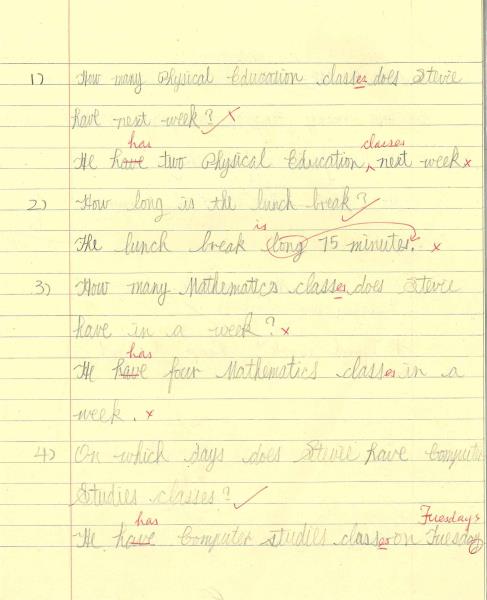 1) How many Physical Education classes does Stevie
have next week?
has
classes
He have two Physical Education, next week
2) How long is the lunch break?
is
The lunch break long 75 minutes.
3) How many Mathematics classes does Stevie
have in a week?
has
He have four Mathematics classes in a
week.
4) On which days does Stevie have Computer
Studies classes?
has
Tuesdays
He have Computer studies classes on Tuesday